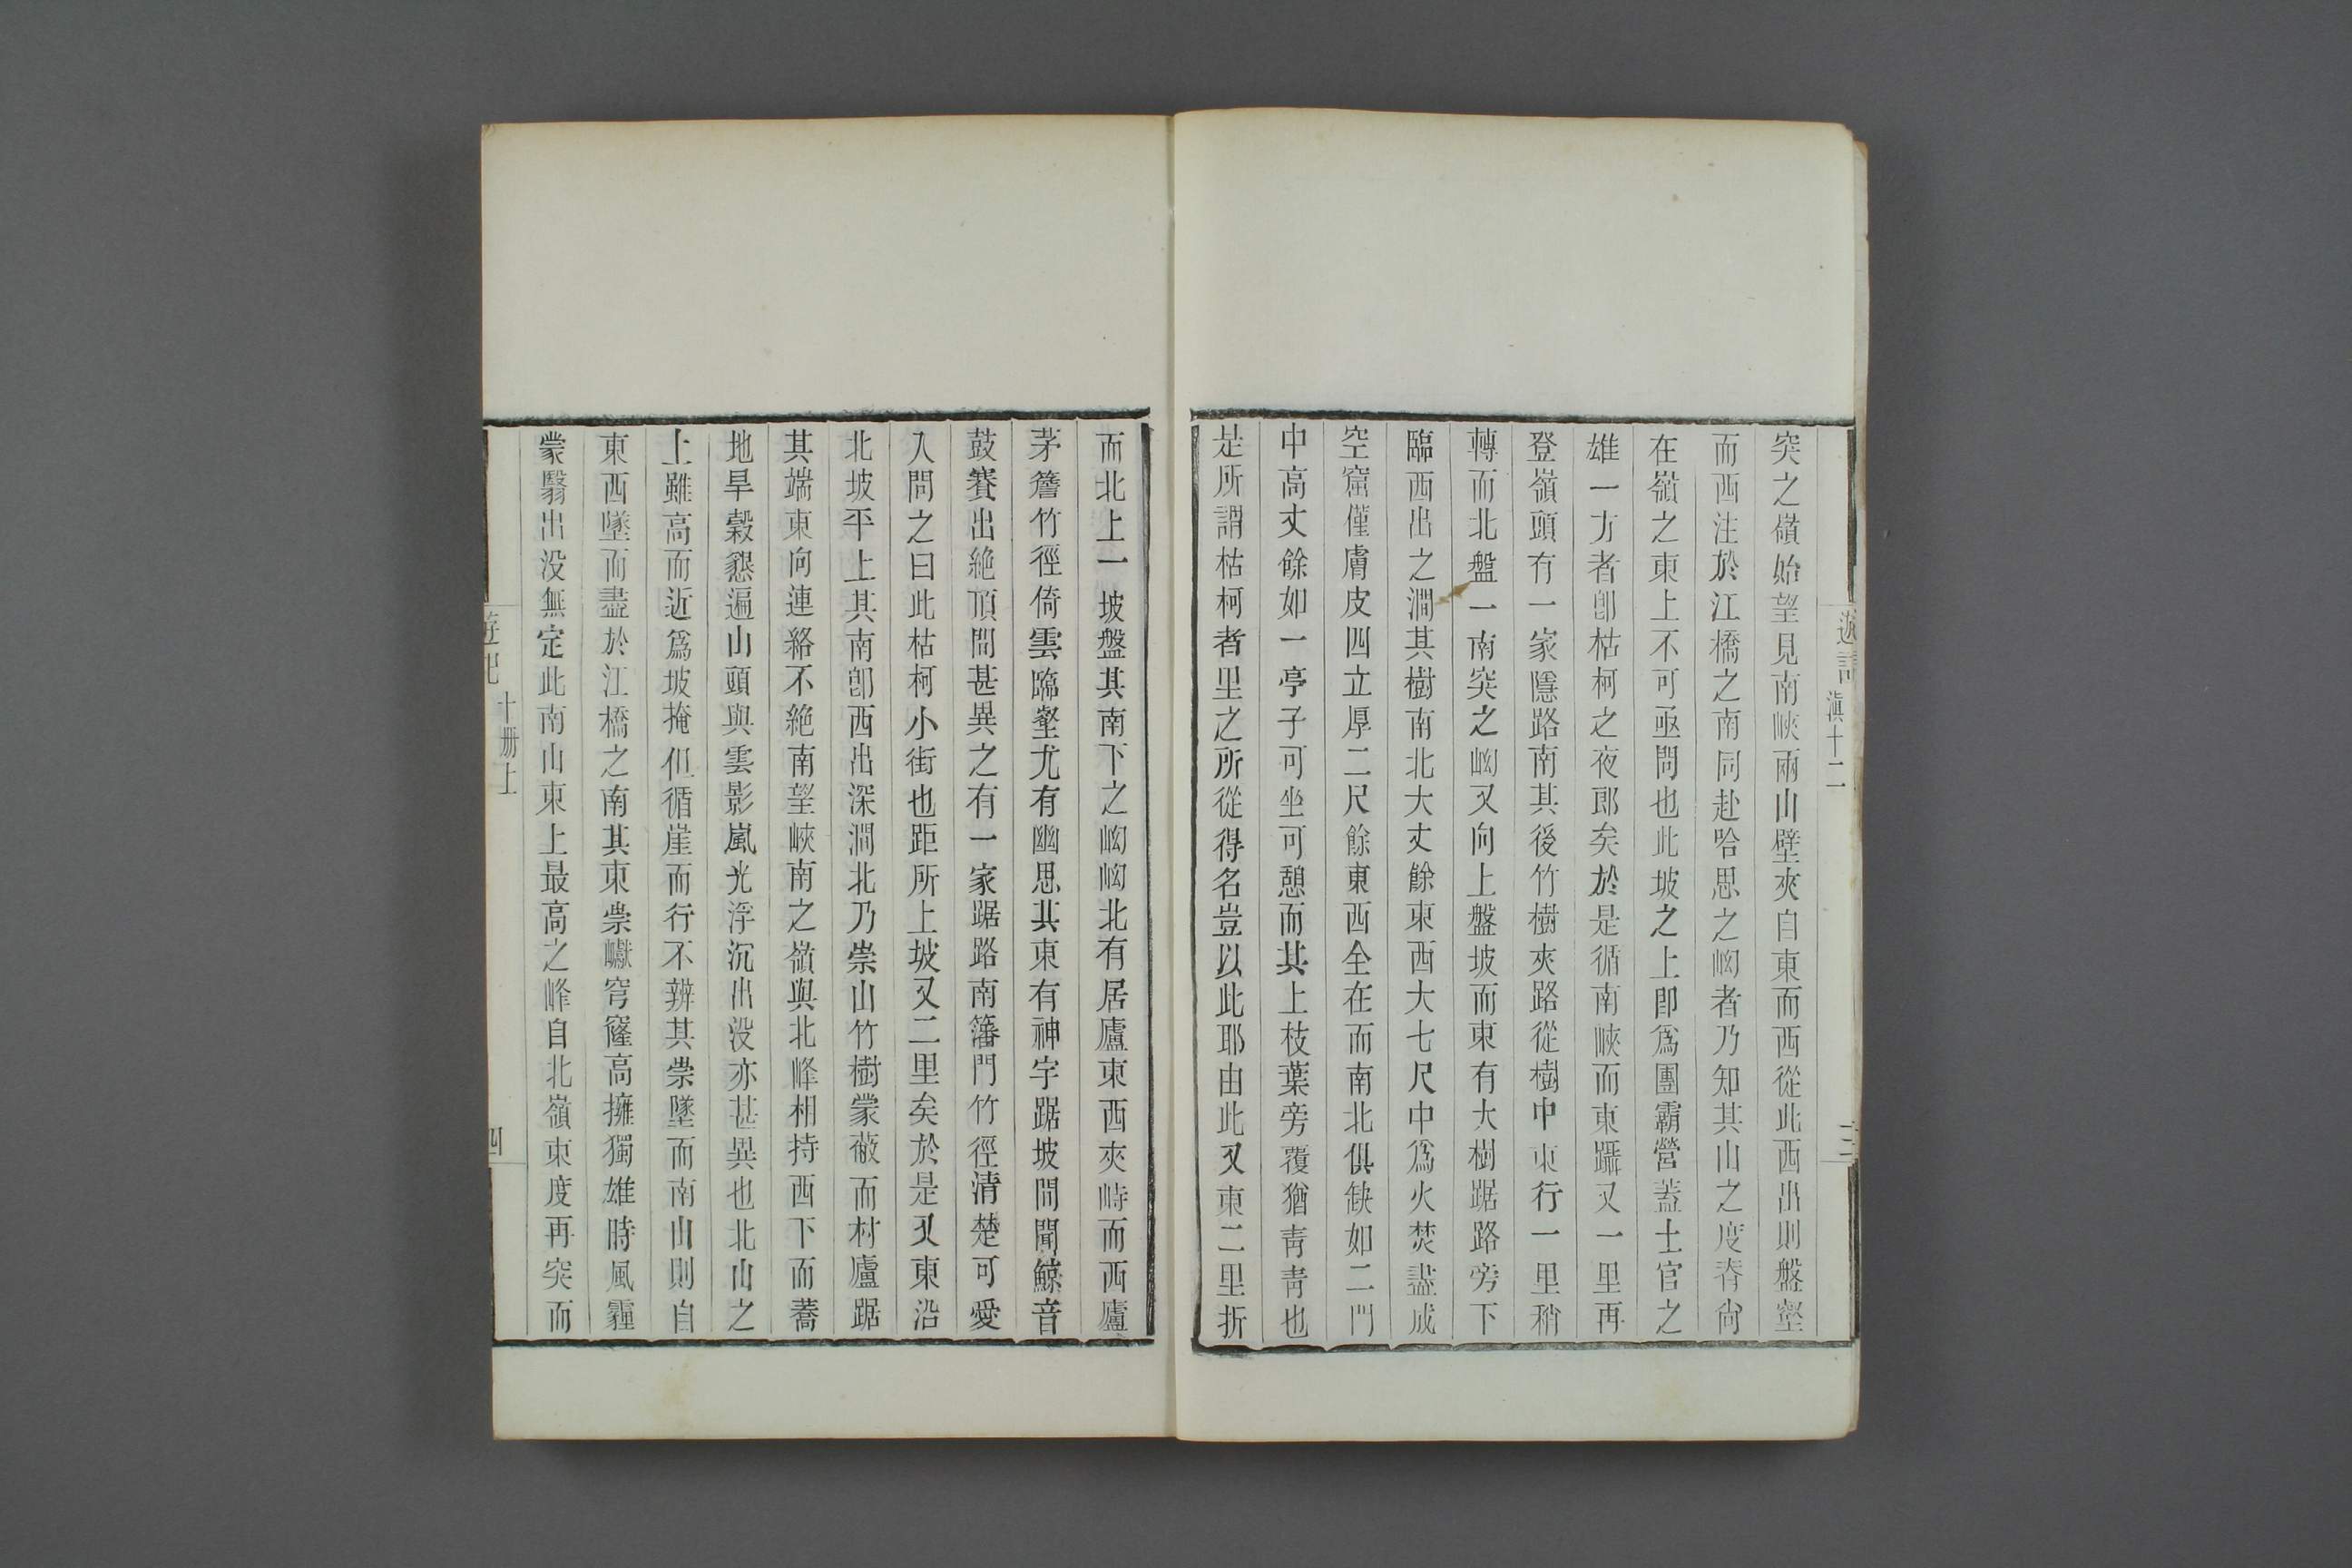 遊記 滇十二
突之嶺始望見南峽兩山壁夾自東而西從此西出則盤壑
而西注於江橋之南同赴哈思之坳者乃知其山之度脊尙
在嶺之東上不可亟問也此坡之上卽爲團霸營蓋土官之
雄一方者卽枯柯之夜郎矣於是循南峽而東躡又一里再
登嶺頭有一家隱路南其後竹樹夾路從樹中東行一里稍
轉而北盤一南突之坳又向上盤坡而東有大樹踞路旁下
臨西出之澗其樹南北大丈餘東西大七尺中爲火焚盡成
空窟僅膚皮四立厚二尺餘東西全在而南北俱缺如二門
中高丈餘如一亭子可坐可憩而其上枝葉旁覆猶靑靑也
是所謂枯柯者里之所從得名豈以此耶由此又東二里折
而北上一坡盤其南下之坳坳北有居廬東西夾峙而西廬
茅簷竹徑倚雲臨壑尤有幽思其東有神宇踞坡間聞鯨音
鼓賽出絶頂間甚異之有一家踞路南籓門竹徑清楚可愛
入問之曰此枯柯小街也距所上坡又二里矣於是又東沿
北坡平上其南卽西出深澗北乃崇山竹樹蒙蔽而村廬踞
其端東向連絡不絶南望峽南之嶺與北峰相持西下而蕎
地旱穀懇遍山頭與雲影嵐光浮沉出沒亦甚異也北山之
上雖高而近爲坡掩但循崖而行不辨其崇墜而南山則自
東西墜而盡於江橋之南其東崇巘穹窿高擁獨雄時風霾
蒙翳出没無定此南山東上最高之峰自北嶺東度再突而
遊記 十册上 四